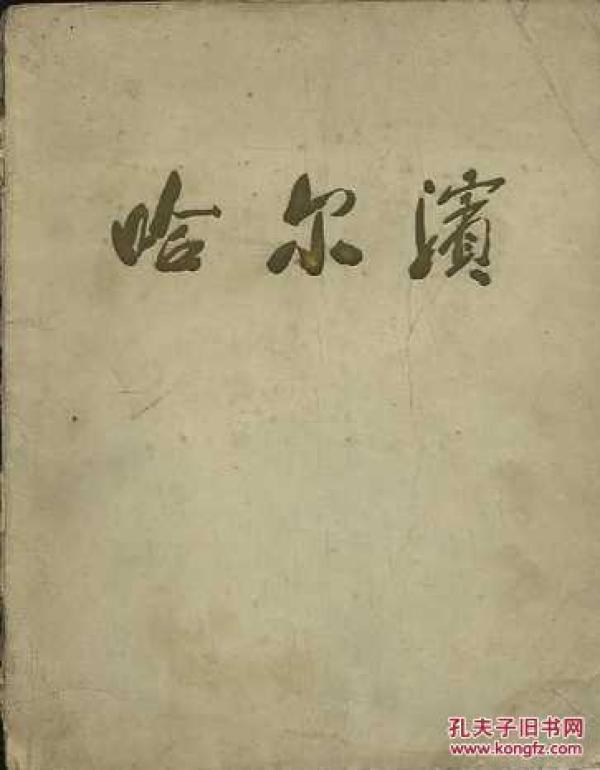 哈尔濱
孔夫子旧书网
www.kongfz.com